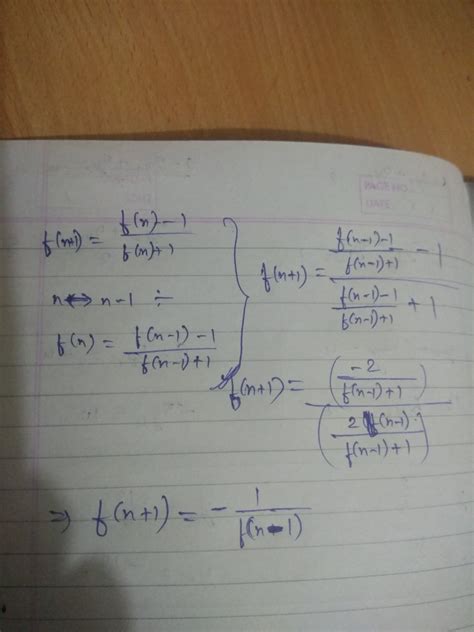 PAGE NO.
DATE
f(n+1) = \frac{f(n)-1}{f(n)+1}
n ↔ n-1 ÷
f(n) = \frac{f(n-1)-1}{f(n-1)+1}
f(n+1) = \frac{\frac{f(n-1)-1}{f(n-1)+1} - 1}{\frac{f(n-1)-1}{f(n-1)+1} + 1}
f(n+1) = \frac{\left(\frac{-2}{f(n-1)+1}\right)}{\left(\frac{2f(n-1)}{f(n-1)+1}\right)}
⇒ f(n+1) = -\frac{1}{f(n-1)}